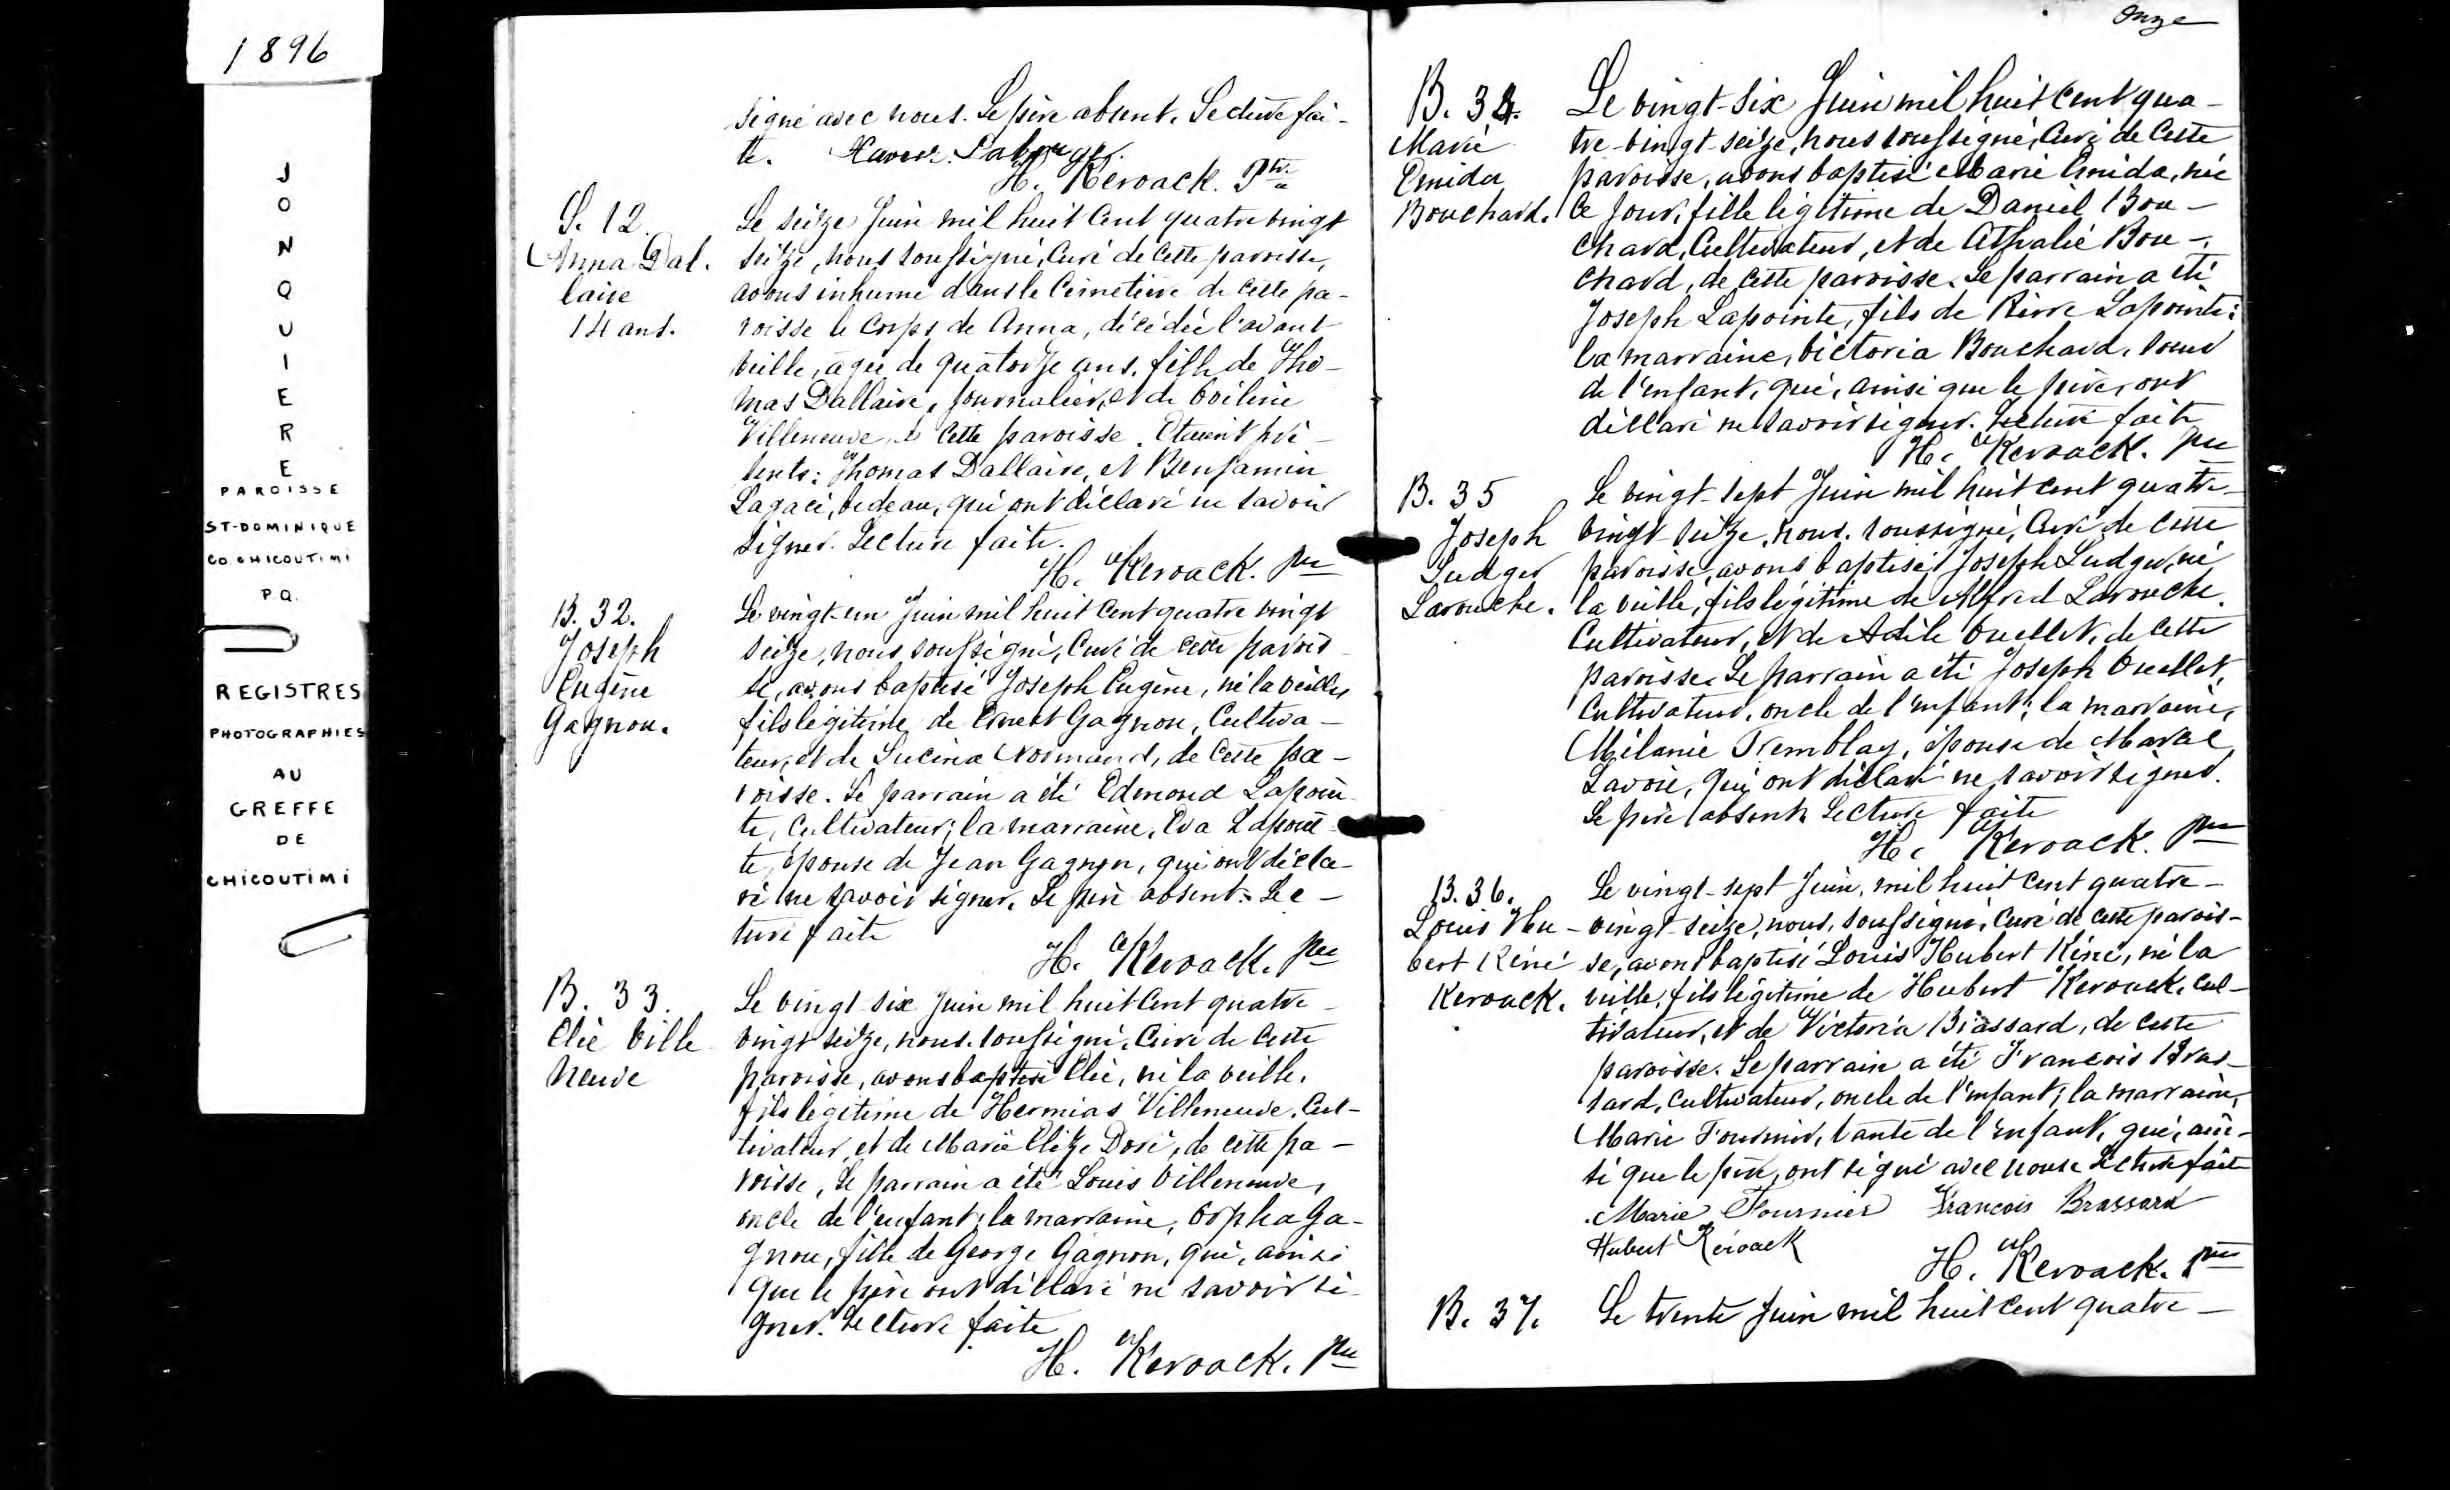 1896
JONQUIERE
PAROISSE
ST-DOMINIQUE
CO. CHICOUTIMI
P.Q.
REGISTRES
PHOTOGRAPHIES
AU
GREFFE
DE
CHICOUTIMI
signé avec nous. Le père absent. Lecture fai-
te.
H. Kéroack. Ptre
S. 12.
Anna Dal.
laire
14 ans.
Le seize Juin mil huit cent quatre vingt
seize, nous soussigné, Curé de cette paroisse,
avons inhumé dans le Cimetière de cette pa-
roisse le corps de Anna, décédée l'avant
veille, agée de quatorze ans, fille de Tho-
mas Dallaire, journalier, et de Célina
Villeneuve de cette paroisse. Etaient pré-
sents: Thomas Dallaire, et Benjamin
Lagacé, bedeau, qui ont déclaré ne savoir
signer. Lecture faite.
H. Kéroack. Ptre
B. 32.
Joseph
Eugène
Gagnon.
Le vingt-un Juin mil huit cent quatre vingt
seize, nous soussigné, Curé de cette parois-
se, avons baptisé Joseph Eugène, né la veille,
fils légitime de Ernest Gagnon, Cultiva-
teur, et de Lucina Normand, de cette pa-
roisse. Le parrain a été Edmond Lapoin-
te, Cultivateur; la marraine, Eva Lapoin-
te, épouse de Jean Gagnon, qui ont décla-
ré ne savoir signer. Le père absent. Lec-
ture faite
H. Kéroack. Ptre
B. 33.
Elie Ville-
neuve
Le vingt-six Juin mil huit cent quatre-
vingt seize, nous soussigné, Curé de cette
paroisse, avons baptisé Elie, né la veille,
fils légitime de Hermias Villeneuve, Cul-
tivateur, et de Marie Elize Doré, de cette pa-
roisse. Le parrain a été Louis Villeneuve,
oncle de l'enfant; la marraine, Orpha Ga-
gnon, fille de George Gagnon, qui, ainsi
que le père ont déclaré ne savoir si-
gner. Lecture faite
H. Kéroack. Ptre
Onze
B. 34.
Marie
Emida
Bouchard.
Le vingt-six Juin mil huit cent qua-
tre-vingt-seize, nous soussigné, Curé de cette
paroisse, avons baptisé Marie Emida, née
ce jour, fille légitime de Daniel Bou-
chard, Cultivateur, et de Athalie Bou-
chard, de cette paroisse. Le parrain a été
Joseph Lapointe, fils de Pierre Lapointe;
la marraine, Victoria Bouchard, soeur
de l'enfant, qui, ainsi que le père, ont
déclaré ne savoir signer. Lecture faite
H. Kéroack. Ptre
B. 35
Joseph
Ludger
Larouche.
Le vingt-sept Juin mil huit cent quatre-
vingt-seize, nous, soussigné, Curé de cette
paroisse, avons baptisé Joseph Ludger, né
la veille, fils légitime de Alfred Larouche,
Cultivateur, et de Adèle Ouellet, de cette
paroisse. Le parrain a été Joseph Ouellet,
Cultivateur, oncle de l'enfant; la marraine,
Mélanie Tremblay, épouse de
Lavoie, qui ont déclaré ne savoir signer.
Le père absent. Lecture faite
H. Kéroack. Ptre
B. 36.
Louis Hu-
bert Réné
Kérouack.
Le vingt-sept Juin, mil huit cent quatre-
vingt-seize, nous, soussigné, Curé de cette parois-
se, avons baptisé Louis Hubert Réné, né la
veille, fils légitime de Hubert Kérouack, Cul-
tivateur, et de Victoria Brassard, de cette
paroisse. Le parrain a été François Bras-
sard, Cultivateur, oncle de l'enfant; la marraine,
Marie Fournier, tante de l'enfant, qui, ain-
si que le père, ont signé avec nous. Lecture faite
Marie Fournier François Brassard
Hubert Kéroack
H. Kéroack. Ptre
B. 37.
Le trente Juin mil huit cent quatre-